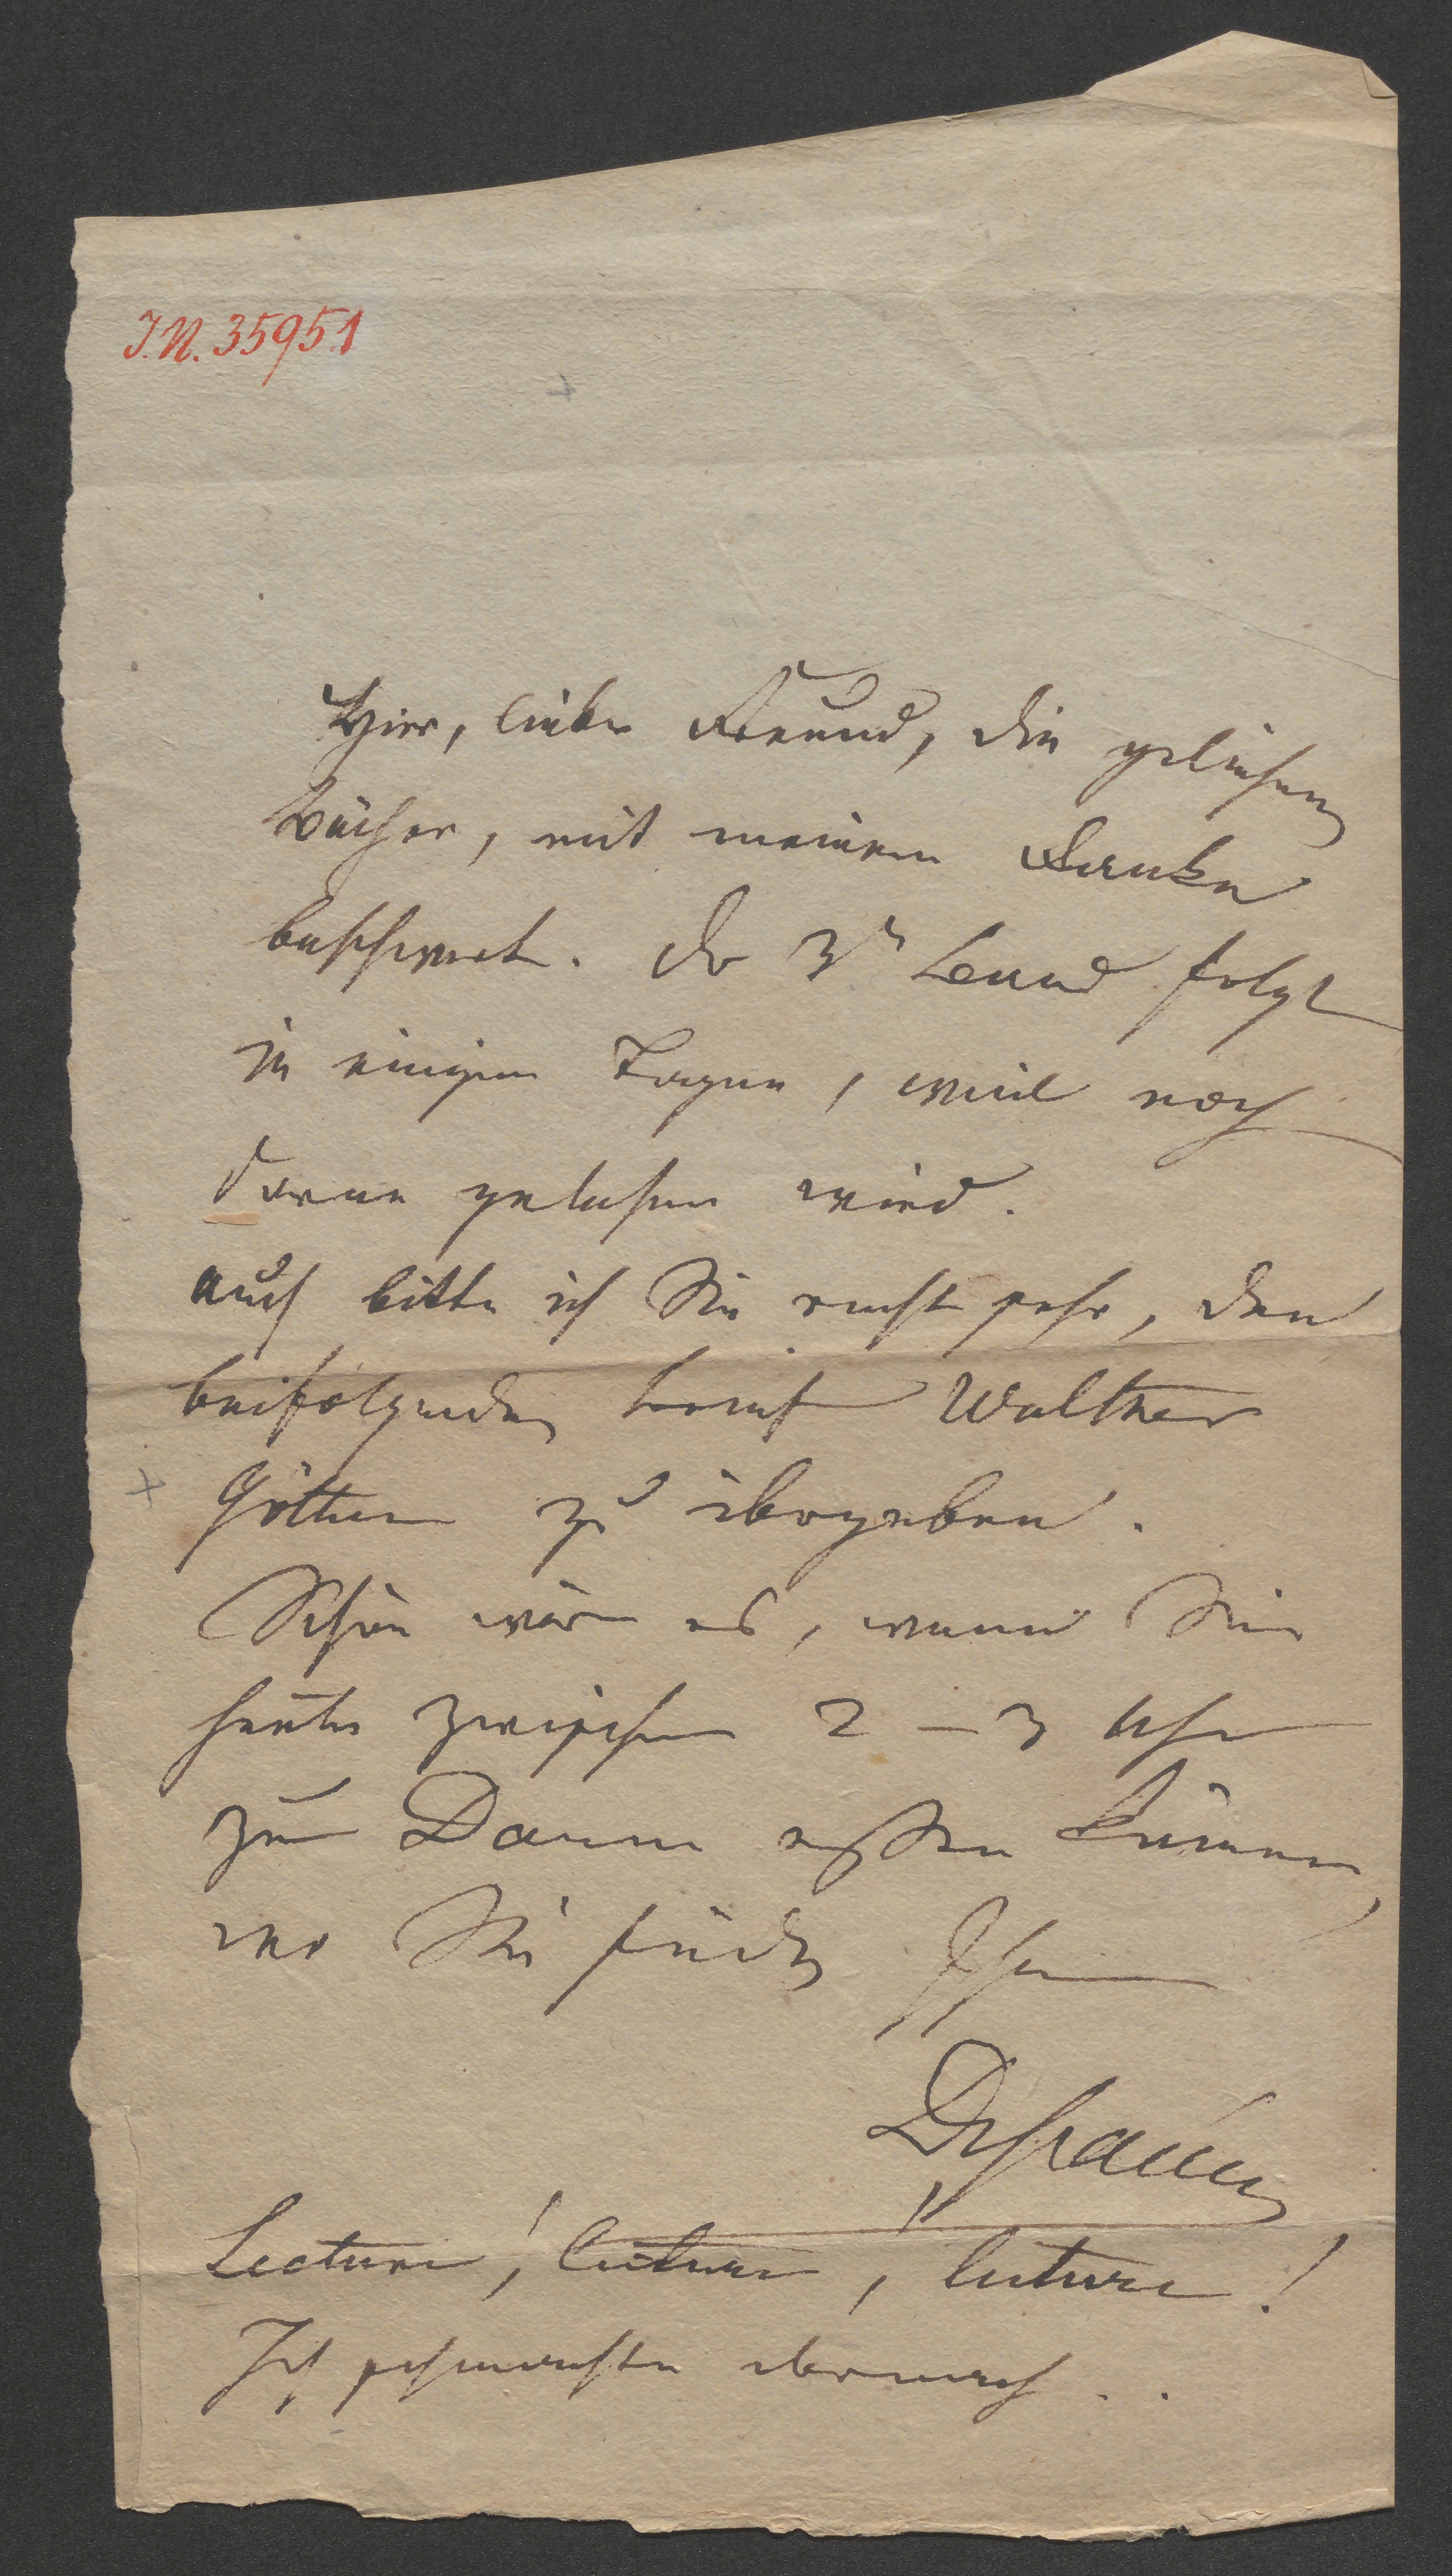 J.N. 35951
Hier, lieber Freund, die geliehenen
Bücher, mit meinem Danke
beschwert. Der 3te Band folgt
in einigen Tagen, weil noch
daran gelesen wird.
Auch bitte ich Sie recht sehr, den
beifolgenden Brief Walther
Göthen zu übergeben.
Schön wär es, wenn Sie
heute zwischen 2 – 3 Uhr
zu Daum essen kämen,
wo Sie finden Ihren
Lecture! lecture! lecture!
Ich schmachte darnach..